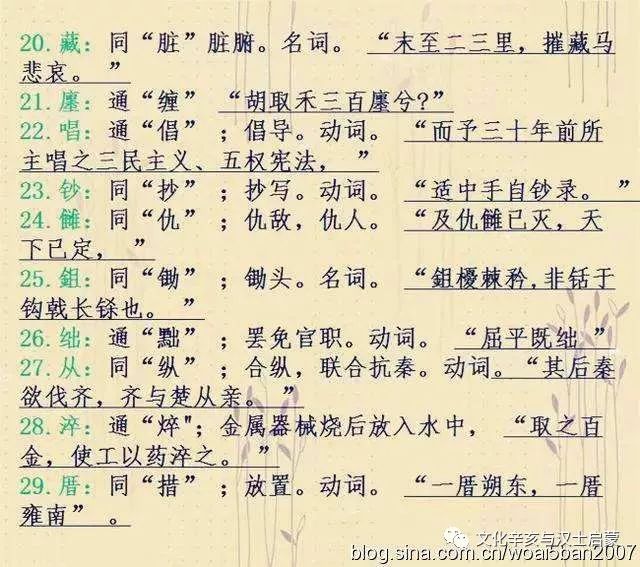 20.藏：同“脏”脏腑。名词。 “未至二三里，摧藏马
悲哀。”
21.廛：通“缠” “胡取禾三百廛兮?”
22.唱：通“倡” ；倡导。动词。 “而予三十年前所
主唱之三民主义、五权宪法， ”
23.钞：同“抄” ；抄写。动词。 “适中手自钞录。 ”
24.雠：同“仇” ；仇敌，仇人。 “及仇雠已灭，天
下已定， ”
25.鉏：同“锄” ；锄头。名词。 “鉏櫌棘矜,非铦于
钩戟长铩也。 ”
26.绌：通“黜” ；罢免官职。动词。 “屈平既绌 ”
27.从：同“纵” ；合纵，联合抗秦。动词。“其后秦
欲伐齐，齐与楚从亲。 ”
28.淬：通“焠"；金属器械烧后放入水中， “取之百
金，使工以药淬之。 ”
29.厝：同“措” ；放置。动词。 “一厝朔东，一厝
雍南” 。
文化辛亥与汉土启蒙
blog.sina.com.cn/woai5ban2007